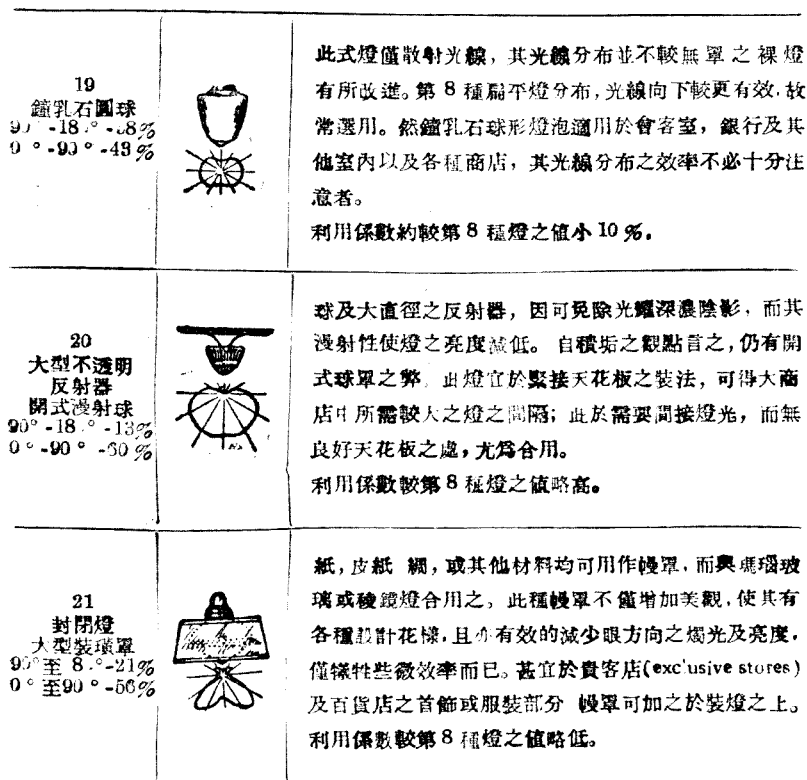 19
鐘乳石圓球
90°-180°-38%
0°-90°-43%
此式燈僅散射光線,其光線分布並不較無罩之裸燈
有所改進。第8種扁平燈分布,光線向下較更有效,故
常選用。然鐘乳石球形燈泡適用於會客室,銀行及其
他室內以及各種商店,其光線分布之效率不必十分注
意者。
利用係數約較第8種燈之值小10%。
20
大型不透明
反射器
開式漫射球
90°-180°-13%
0°-90°-60%
球及大直徑之反射器,因可免除光耀深濃陰影,而其
漫射性使燈之亮度減低。自積垢之觀點言之,仍有開
式球罩之弊,此燈宜於緊接天花板之裝法,可得大商
店中所需較大之燈之間隔;此於需要間接燈光,而無
良好天花板之處,尤爲合用。
利用係數較第8種燈之值略高。
21
封閉燈
大型裝璜罩
90°至180°-21%
0°至90°-56%
紙,皮紙 綢,或其他材料均可用作幔罩,而與瑪瑙玻
璃或稜鏡燈合用之。此種幔罩不僅增加美觀,使其有
各種設計花樣,且亦有效的減少眼方向之燭光及亮度,
僅犧牲些微效率而已。甚宜於貴客店(exclusive stores)
及百貨店之首飾或服裝部分 幔罩可加之於裝燈之上。
利用係數較第8種燈之值略低。